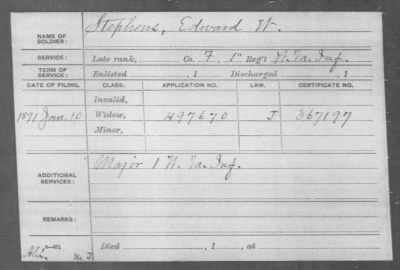 NAME OF SOLDIER: Stephens, Edward W.
SERVICE: Late rank, Co. F, 1" Reg't W. Va. Inf.
TERM OF SERVICE: Enlisted , 1 Discharged , 1
DATE OF FILING. CLASS. APPLICATION NO. LAW. CERTIFICATE NO.
Invalid,
1891 Jan. 10 Widow, 497670 J 367197
Minor,
ADDITIONAL SERVICES: Major 1 W. Va. Inf.
REMARKS:
Died , 1 , at